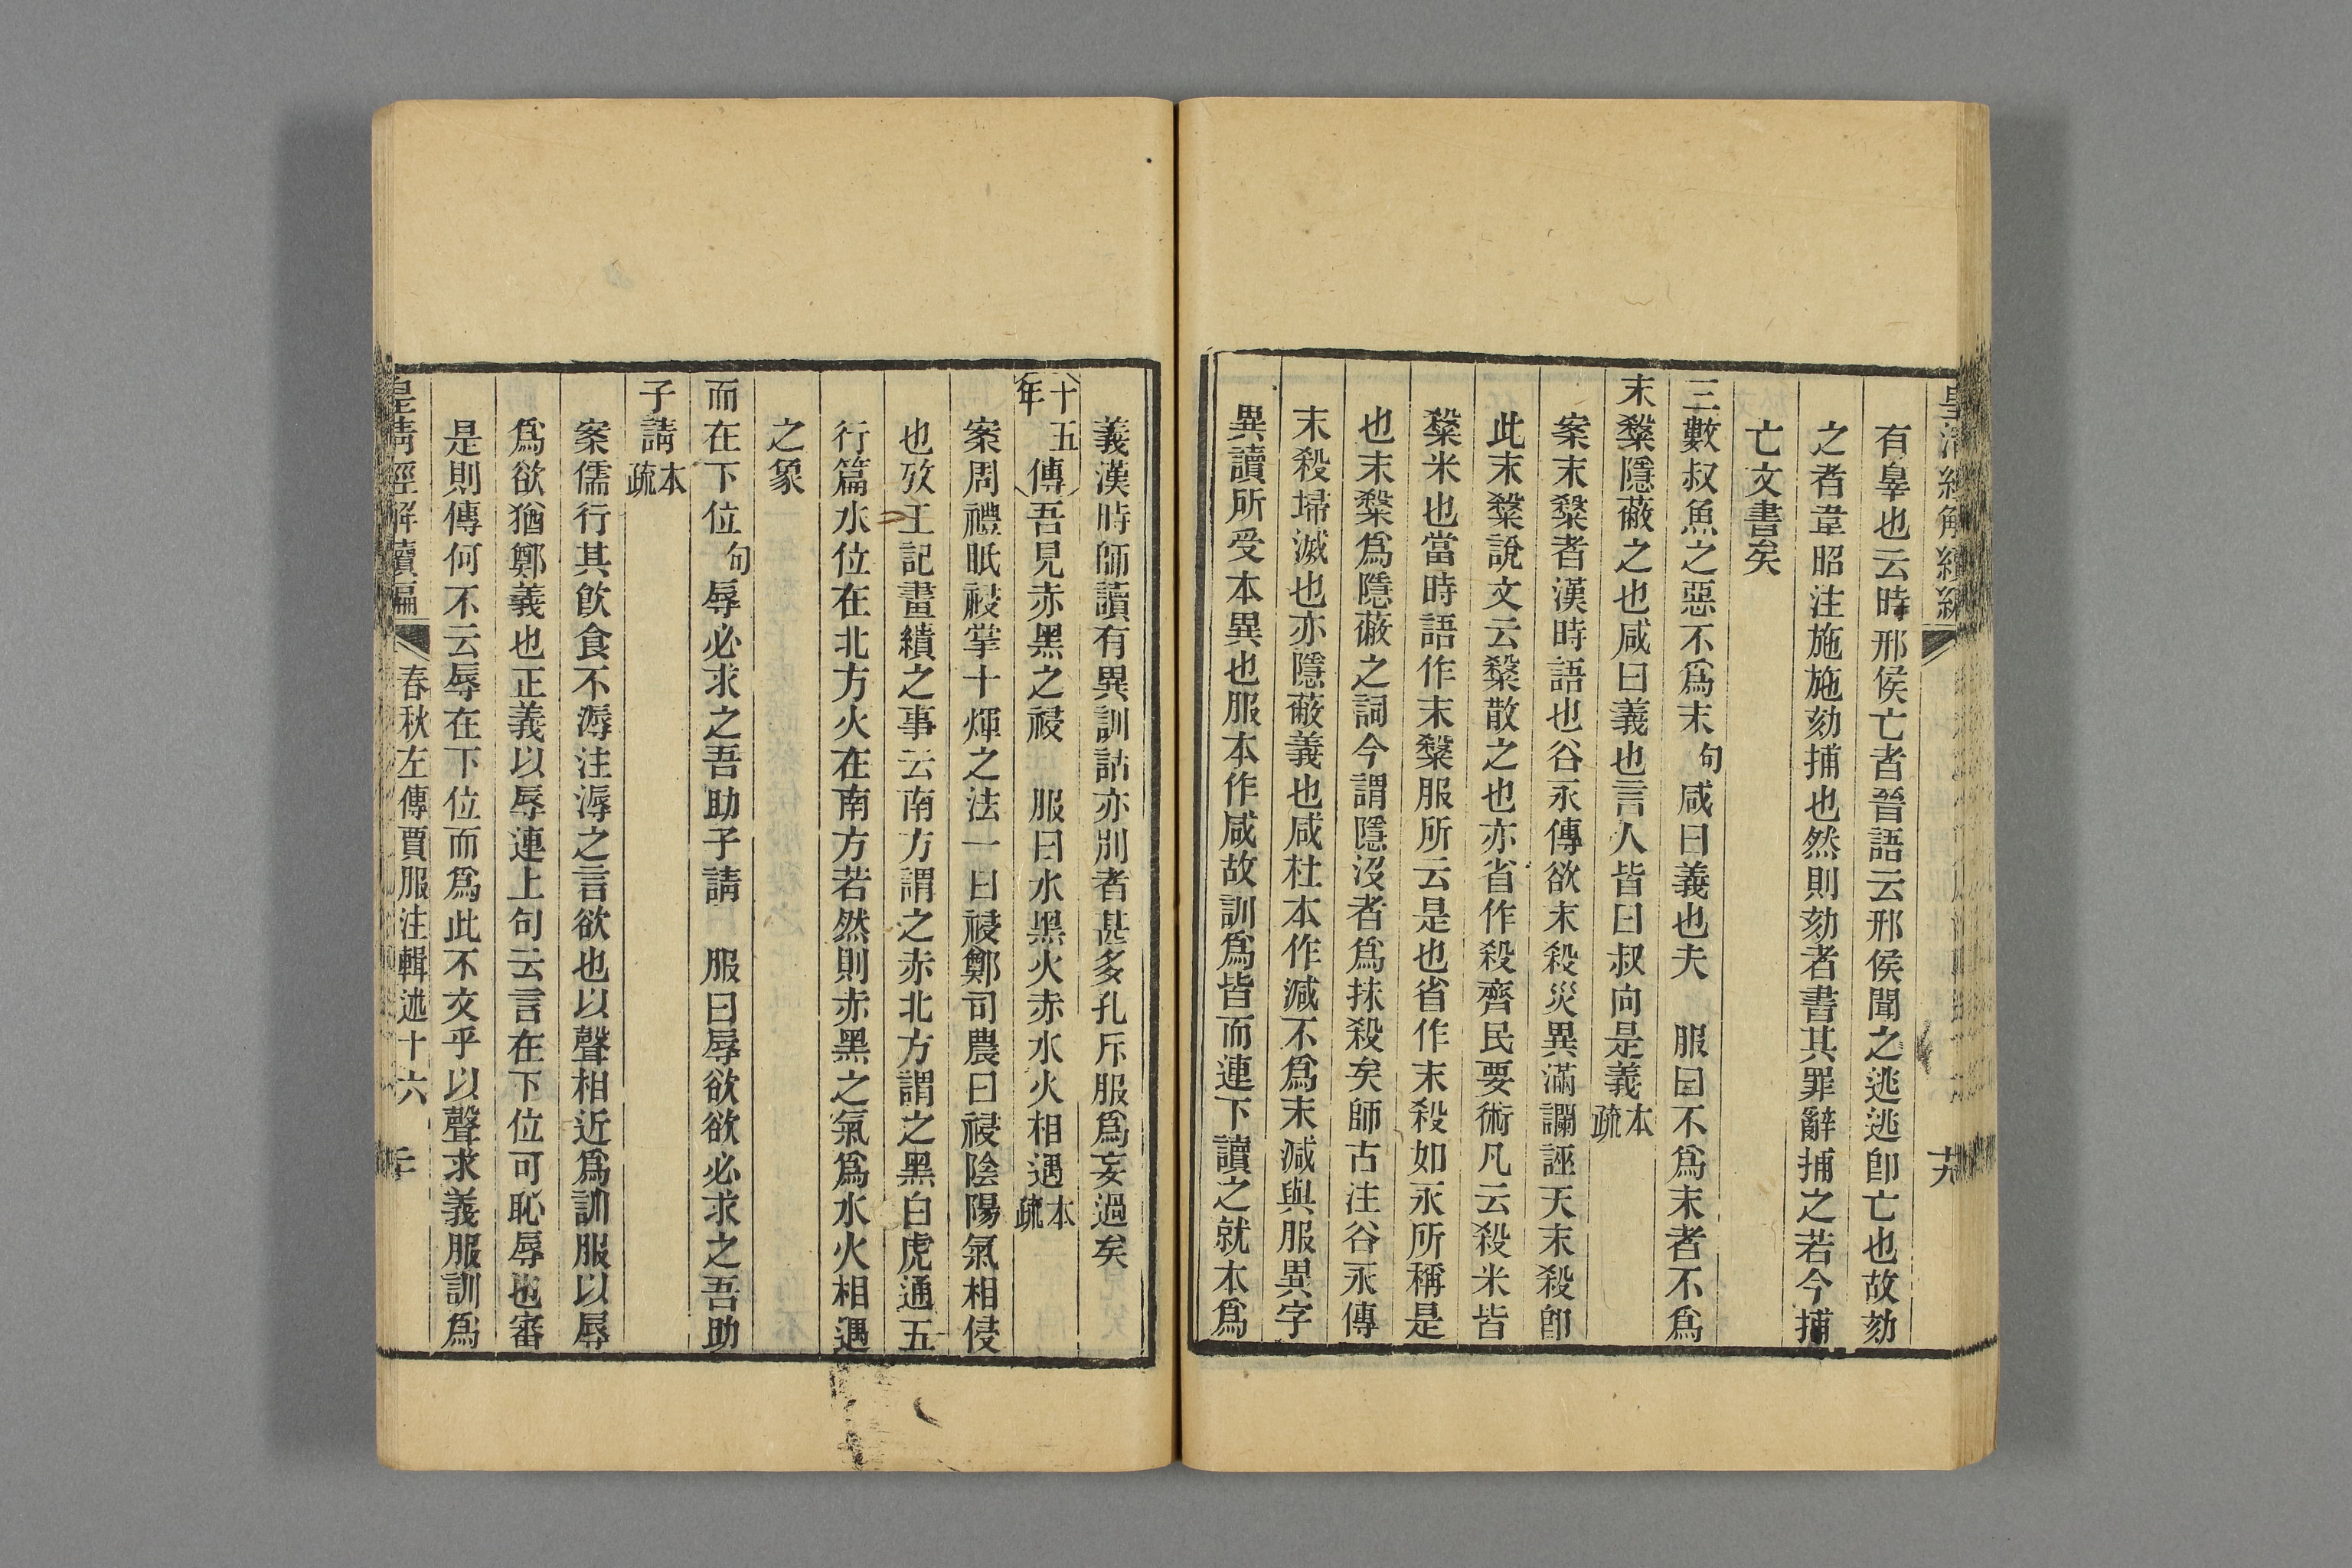 有辠也云時邢侯亡者晉語云邢侯聞之逃逃卽亡也故劾
之者韋昭注施施劾捕也然則劾者書其罪辭捕之若今捕
亡文書矣
三數叔魚之惡不爲末句咸曰義也夫　服曰不爲末者不爲
末䊝隱蔽之也咸曰義也言人皆曰叔向是義本疏
案末䊝者漢時語也谷永傳欲末殺災異滿讕誣天末殺卽
此末䊝說文云䊝散之也亦省作殺齊民要術凡云殺米皆
䊝米也當時語作末䊝服所云是也省作末殺如永所稱是
也末䊝爲隱蔽之詞今謂隱沒者爲抹殺矣師古注谷永傳
末殺埽滅也亦隱蔽義也咸杜本作減不爲末減與服異字
異讀所受本異也服本作咸故訓爲皆而連下讀之就本爲
義漢時師讀有異訓詁亦別者甚多孔斥服爲妄過矣
十五年傳吾見赤黑之祲　服曰水黑火赤水火相遇本疏
案周禮眡祲掌十煇之法一曰祲鄭司農曰祲陰陽氣相侵
也攷工記畫繢之事云南方謂之赤北方謂之黑白虎通五
行篇水位在北方火在南方若然則赤黑之氣爲水火相遇
之象
而在下位句辱必求之吾助子請　服曰辱欲欲必求之吾助
子請本疏
案儒行其飮食不溽注溽之言欲也以聲相近爲訓服以辱
爲欲猶鄭義也正義以辱連上句云言在下位可恥辱也審
是則傳何不云辱在下位而爲此不文乎以聲求義服訓爲
皇淸經解續編　春秋左傳賈服注輯述十六